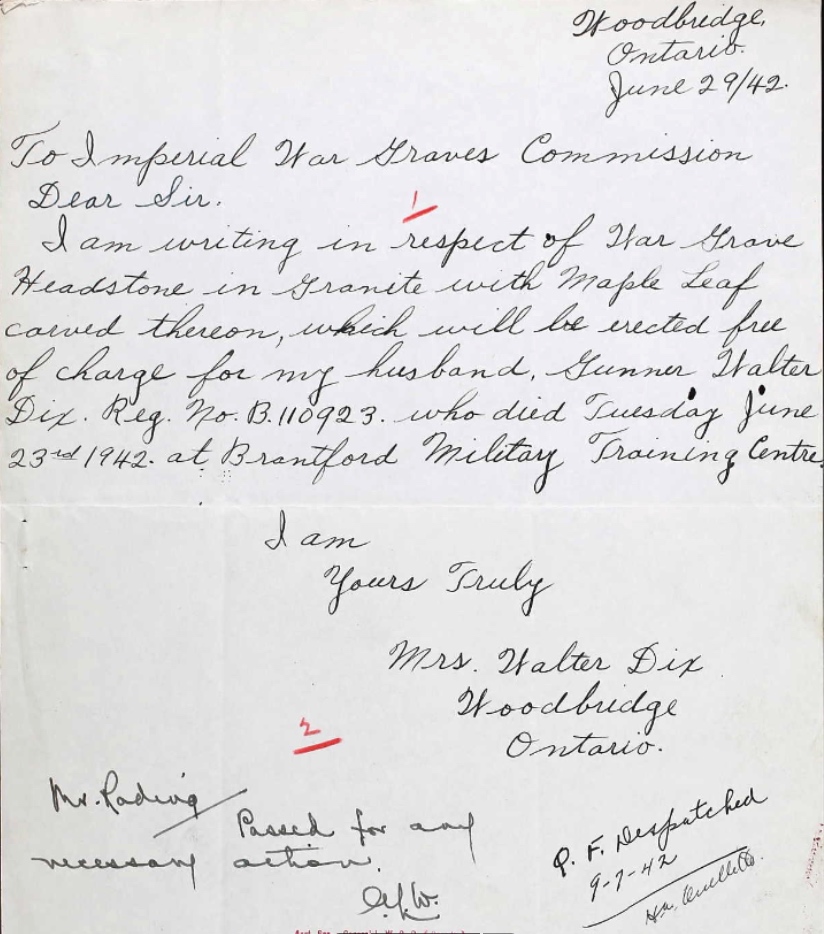 Woodbridge,
Ontario.
June 29/42.
To Imperial War Graves Commission
Dear Sir.
1
I am writing in respect of War Grave
Headstone in Granite with Maple Leaf
carved thereon, which will be erected free
of charge for my husband, Gunner Walter
Dix. Reg. No. B.110923. who died Tuesday June
23rd 1942. at Brantford Military Training Centre.
I am
Yours Truly
Mrs. Walter Dix
Woodbridge
Ontario.
2
Mr.
Passed for any
necessary action.
P. F. Despatched
9-7-42